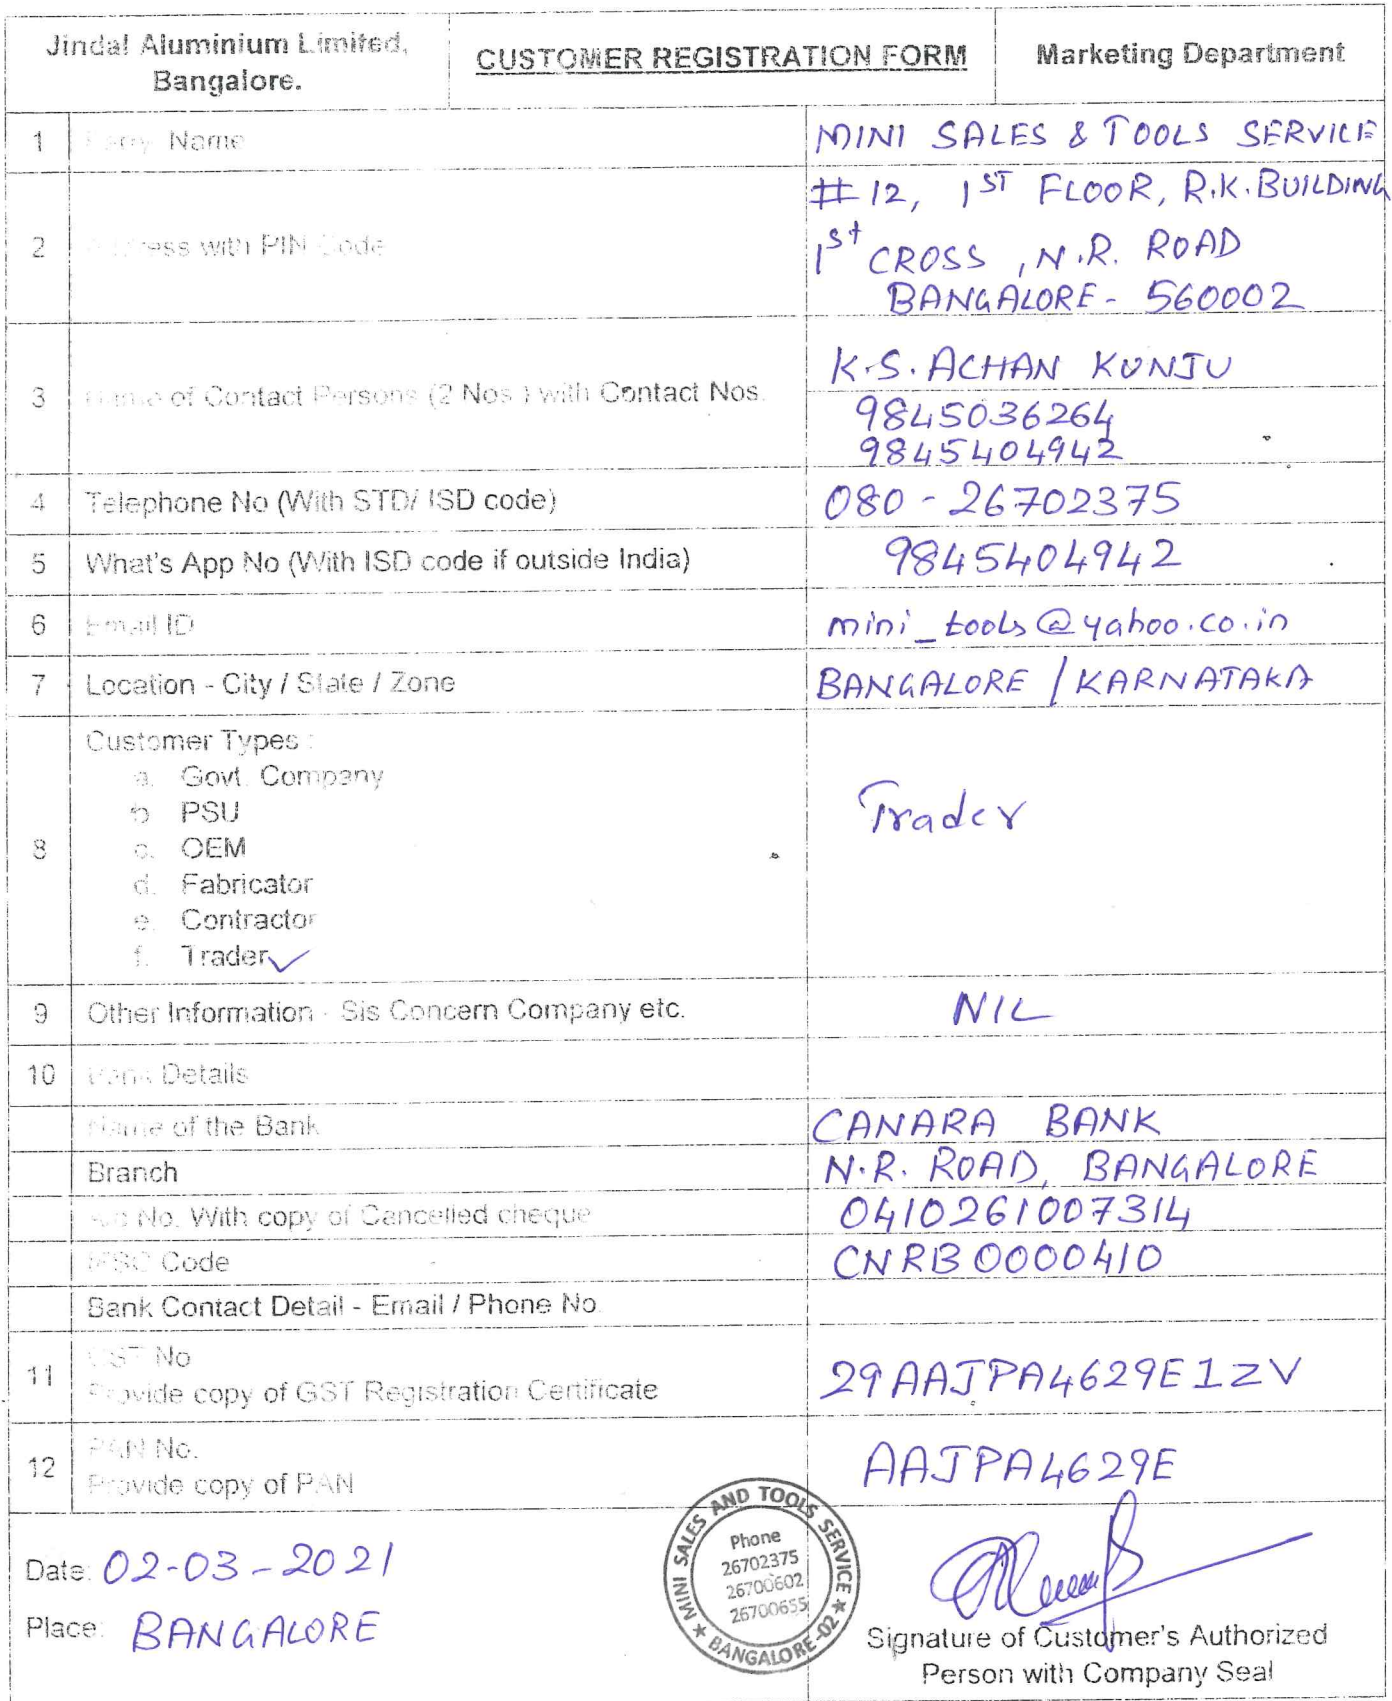 Jindal Aluminium Limited,
Bangalore.
CUSTOMER REGISTRATION FORM
Marketing Department
1 Party Name MINI SALES & TOOLS SERVICE
2 Address with PIN Code #12, 1ST FLOOR, R.K. BUILDING
1st CROSS, N.R. ROAD
BANGALORE - 560002
3 Name of Contact Persons (2 Nos.) with Contact Nos. K.S. ACHAN KUNJU
9845036264
9845404942
4 Telephone No (With STD/ ISD code) 080 - 26702375
5 What's App No (With ISD code if outside India) 9845404942
6 Email ID mini_tools@yahoo.co.in
7 Location - City / State / Zone BANGALORE / KARNATAKA
8 Customer Types :
a. Govt. Company
b. PSU
c. OEM
d. Fabricator
e. Contractor
f. Trader ✓
Trader
9 Other Information - Sis Concern Company etc. NIL
10 Bank Details
Name of the Bank CANARA BANK
Branch N.R. ROAD, BANGALORE
A/c No. With copy of Cancelled cheque 0410261007314
IFSC Code CNRB0000410
Bank Contact Detail - Email / Phone No.
11 GST No
Provide copy of GST Registration Certificate 29AAJPA4629E1ZV
12 PAN No.
Provide copy of PAN AAJPA4629E
Date: 02-03-2021
Place: BANGALORE
MINI SALES AND TOOLS SERVICE
Phone
26702375
26700602
26700655
★ BANGALORE-02 ★
Signature of Customer's Authorized
Person with Company Seal